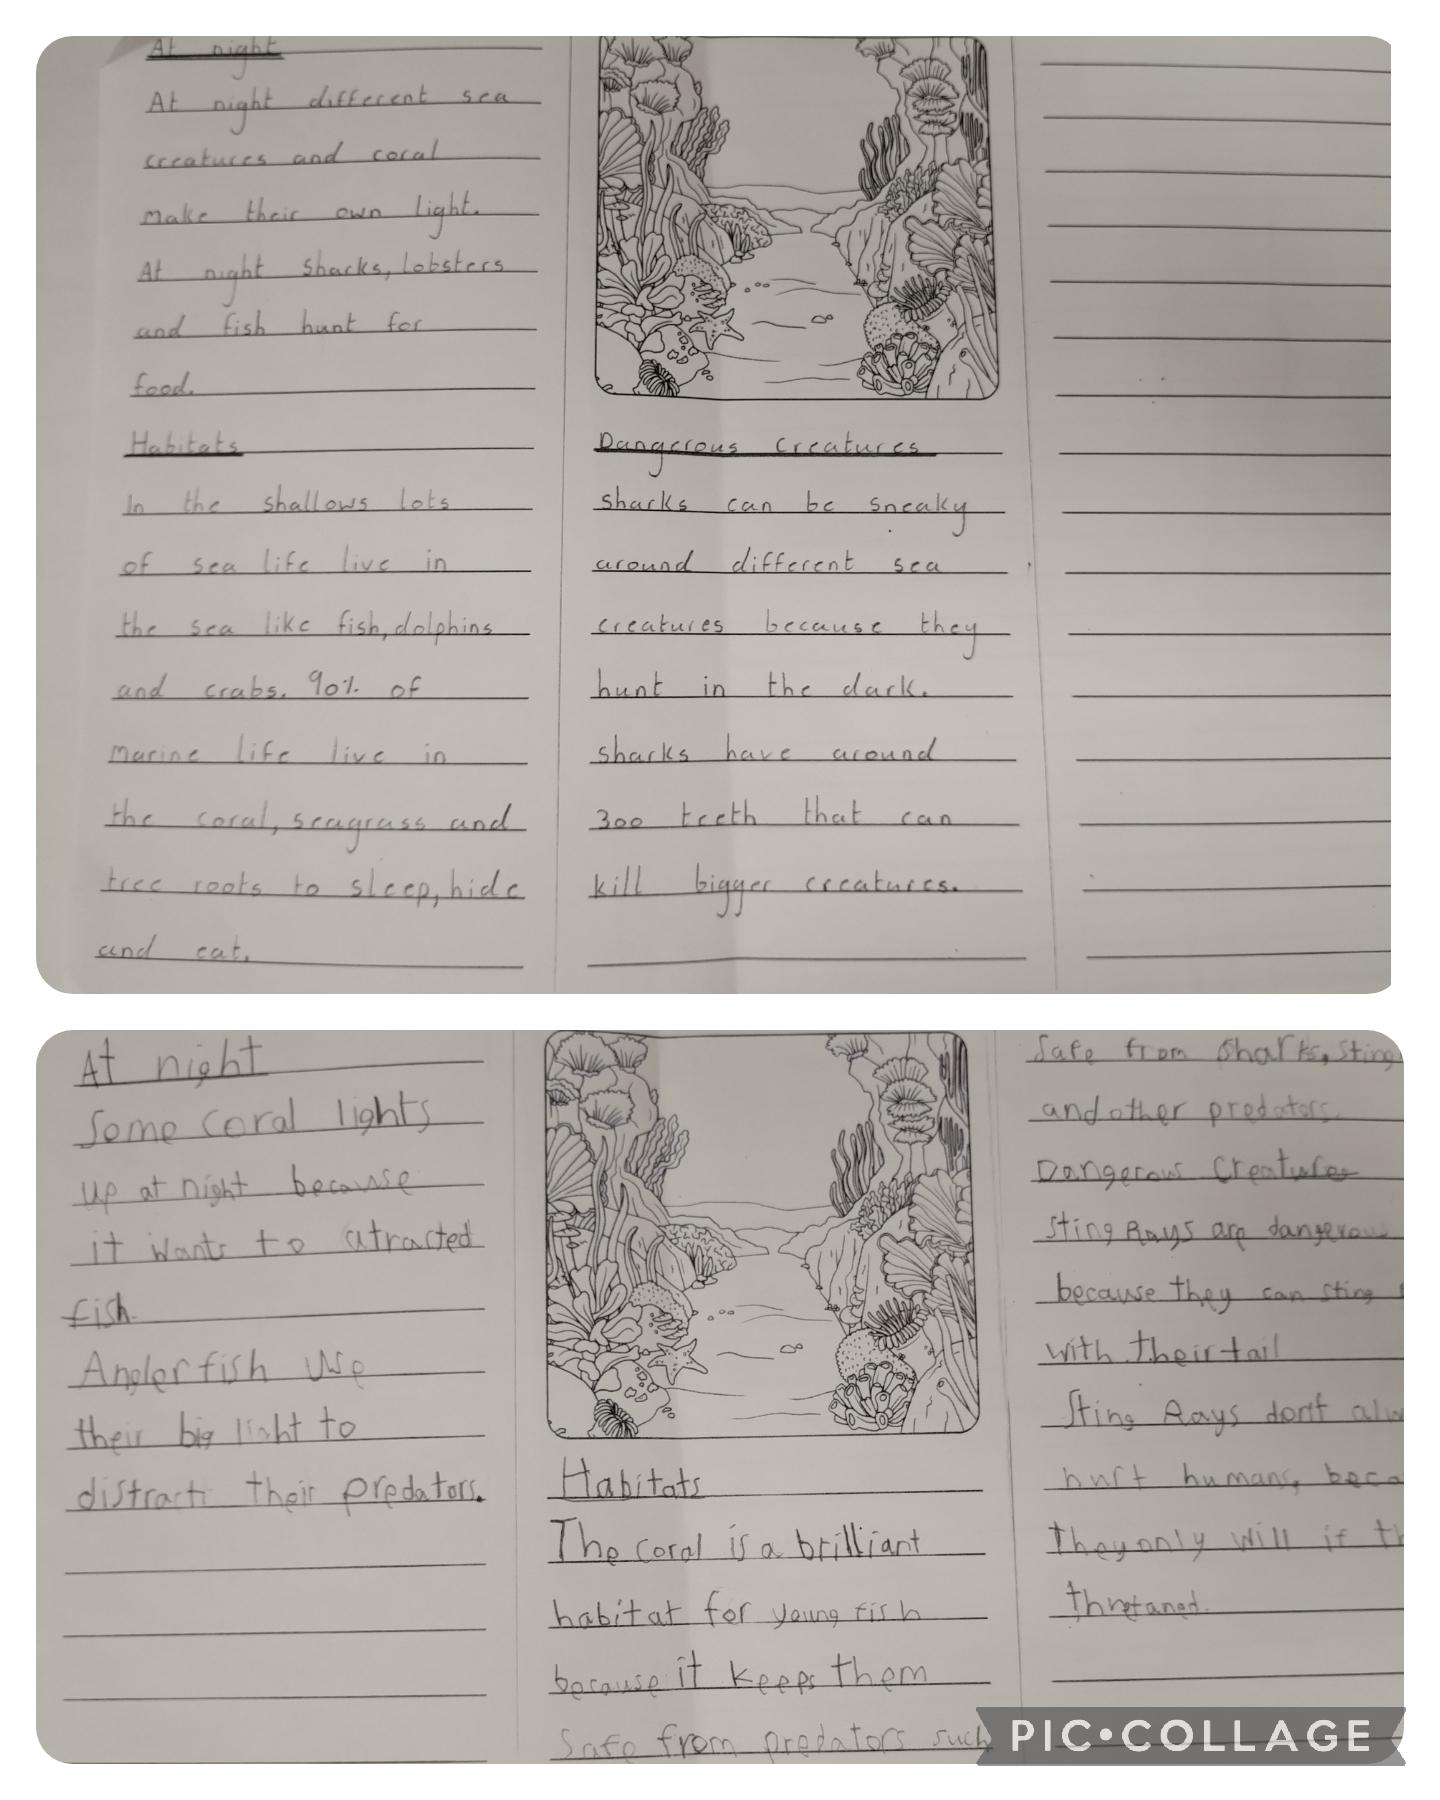 At night
At night different sea
creatures and coral
make their own light.
At night sharks, lobsters
and fish hunt for
food.
Habitats
In the shallows lots
of sea life live in
the sea like fish, dolphins
and crabs. 90% of
marine life live in
the coral, seagrass and
tree roots to sleep, hide
and eat.
Dangerous creatures
sharks can be sneaky
around different sea
creatures because they
hunt in the dark.
sharks have around
300 teeth that can
kill bigger creatures.
At night
Some coral lights
up at night because
it wants to atracted
fish.
Anglerfish use
their big light to
distract their predators.
Habitats
The coral is a brilliant
habitat for young fish
because it keeps them
safe from predators such
Safe from sharks, sting
and other predators.
Dangerous Creatures
Sting Rays are dangerous
because they can sting
with their tail
Sting Rays don't
hurt humans,
they only will if
thretaned.
PIC•COLLAGE